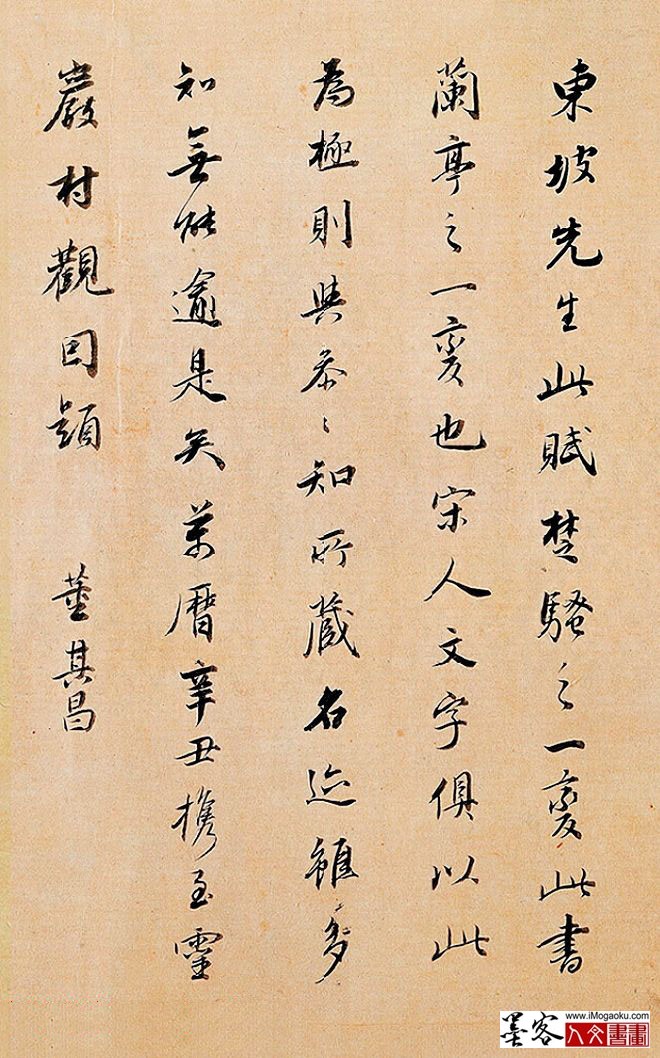 東坡先生此賦楚騷之一變此書
蘭亭之一變也宋人文字俱以此
為極則與參〻知所藏名迹雖多
知無能逾是矣萬曆辛丑攜至靈
巖村觀因題 董其昌
www.iMogaoku.com
墨客 人文書畫